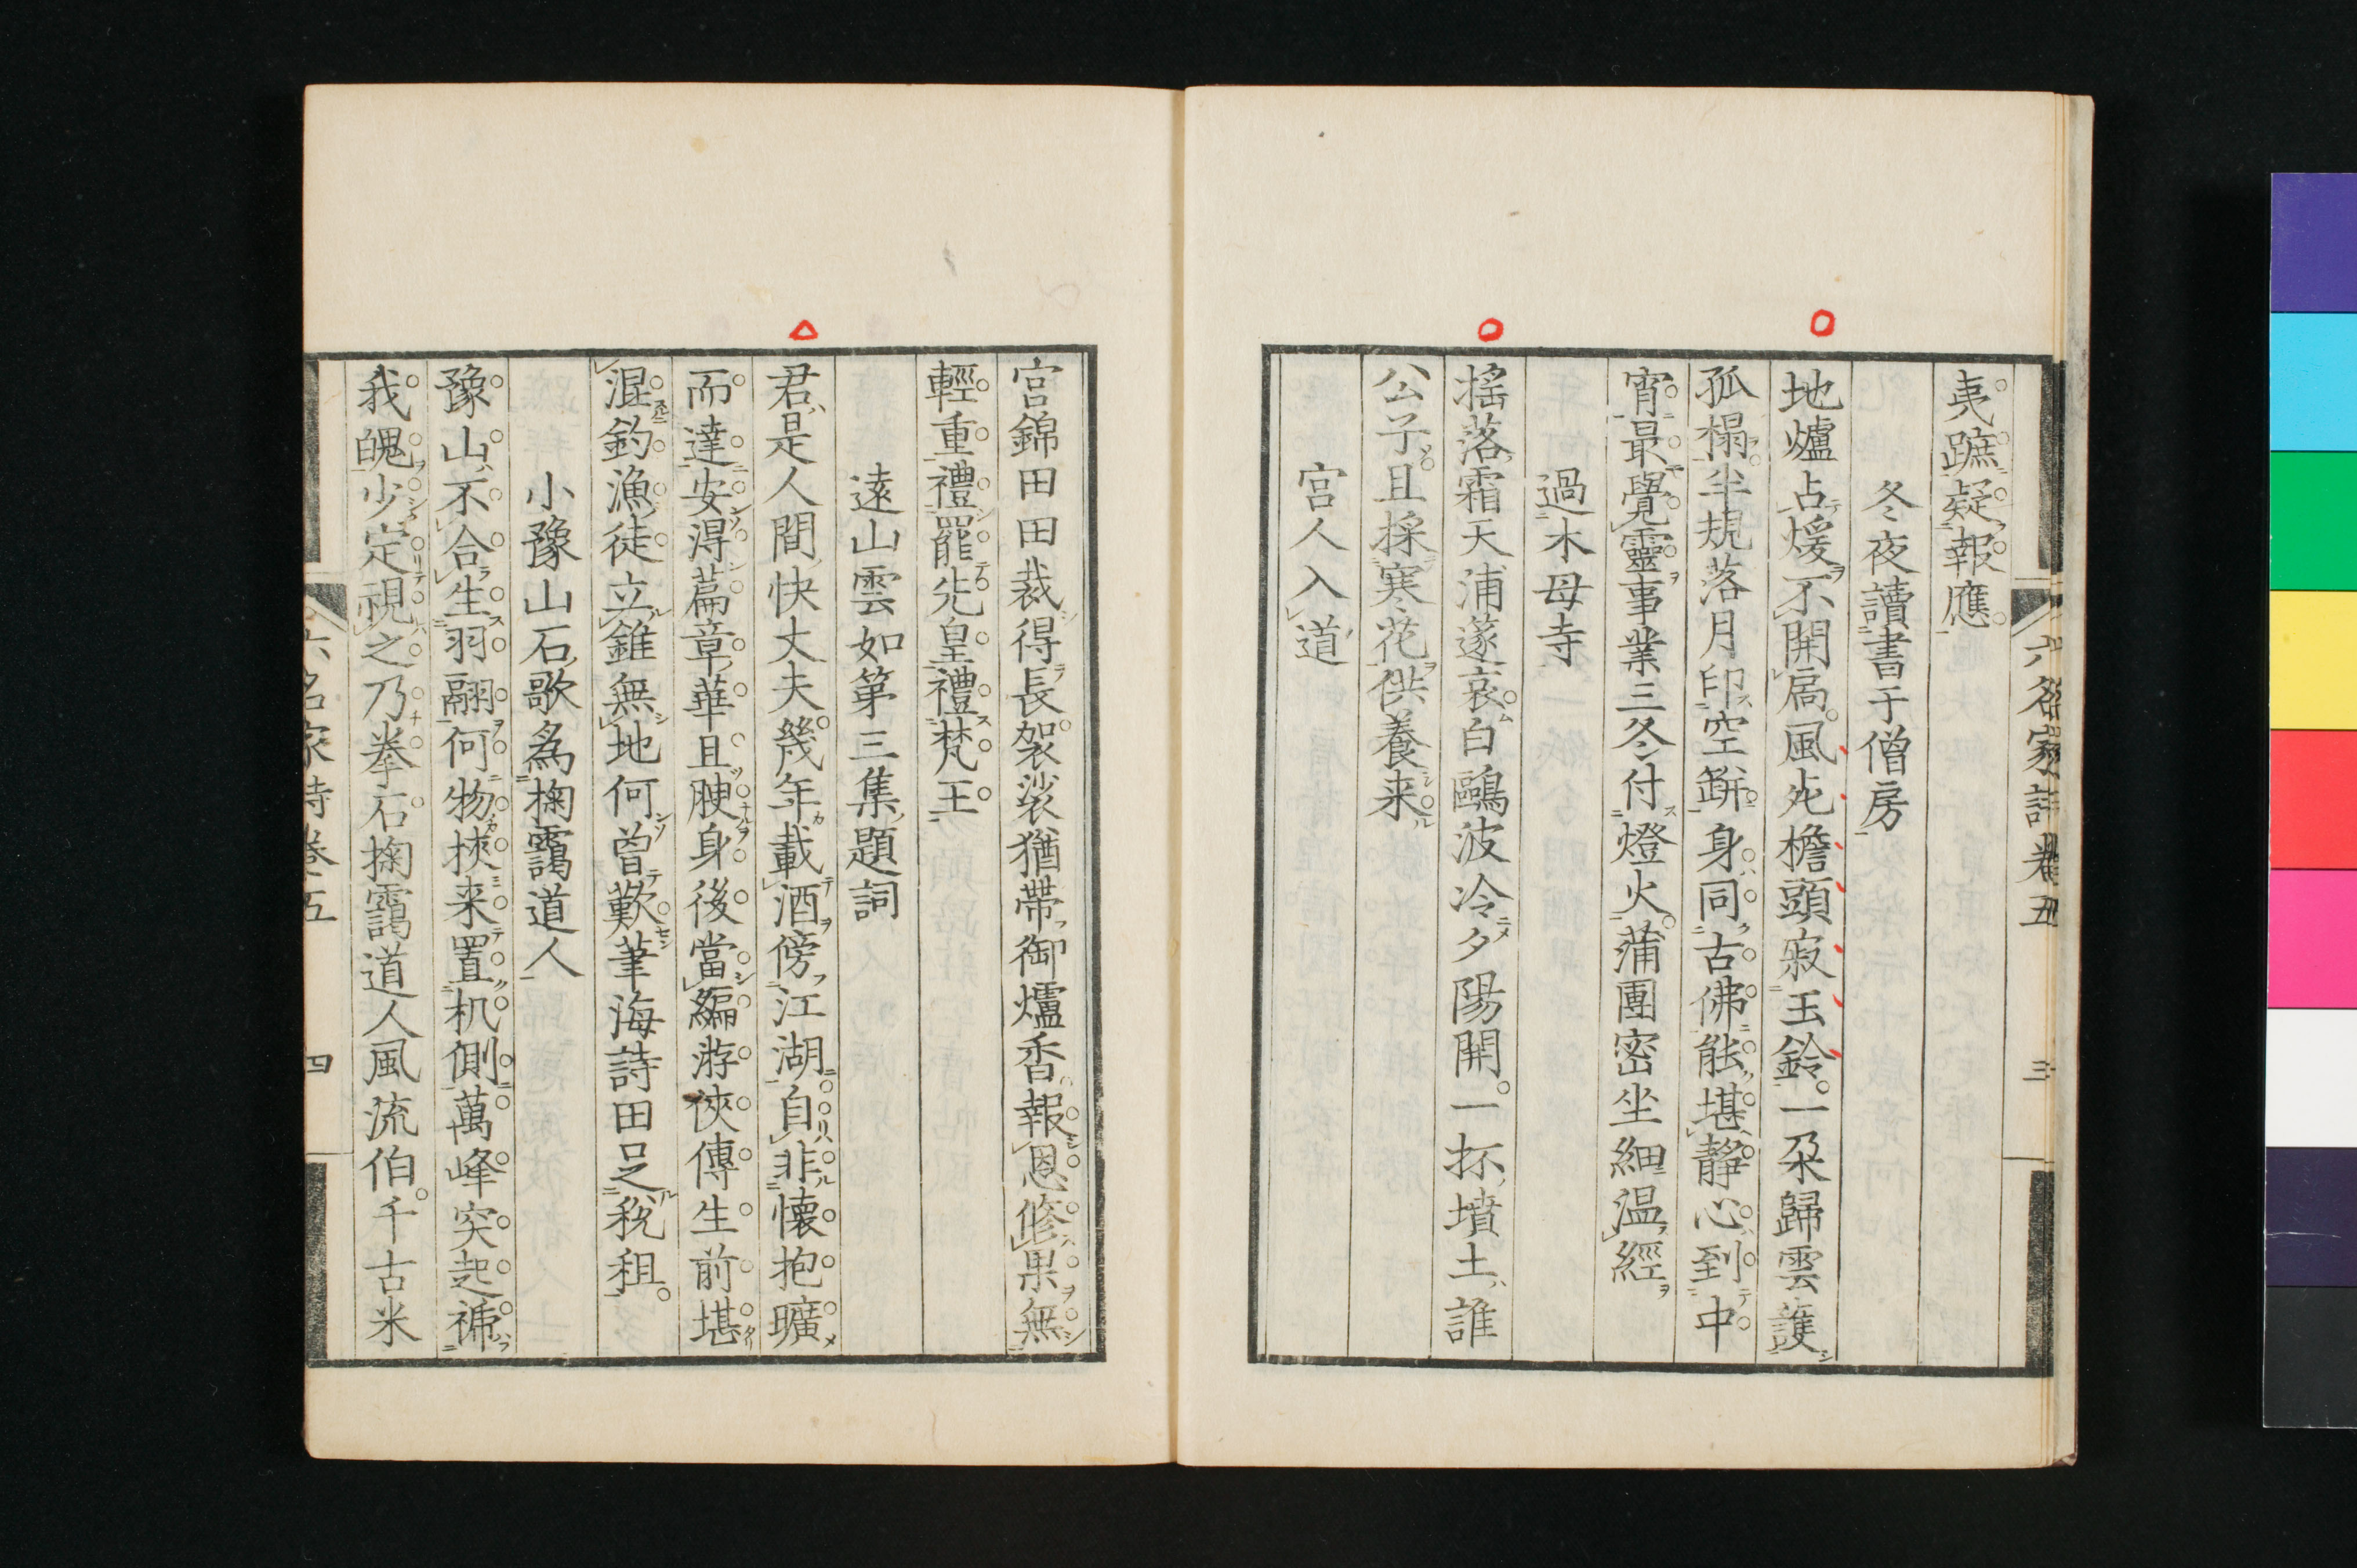 六名家詩卷五
三
夷蹠疑報應
冬夜讀書于僧房
地爐占煖不開扃風戰檐頭寂玉鈴一朶歸雲護
孤榻半規落月印空缾身同古佛能堪靜心到中
宵最覺靈事業三冬付燈火蒲團密坐細温經
過木母寺
搖落霜天浦遂哀白鷗波冷夕陽開一抔墳土誰
公子且採寒花供養来
宮人入道
宮錦田田裁得長袈裟猶帶御爐香報恩修果無
輕重禮罷先皇禮梵王
遠山雲如第三集題詞
君是人間快丈夫幾年載酒傍江湖自非懷抱曠
而達安得篇章華且腴身後當編游俠傳生前堪
混釣漁徒立錐無地何曾歎筆海詩田足稅租
小豫山石歌爲掬靄道人
豫山不合生羽翮何物挾来置机側萬峰突起褫
我魄少定視之乃拳石掬靄道人風流伯千古米
六名家詩卷五
四